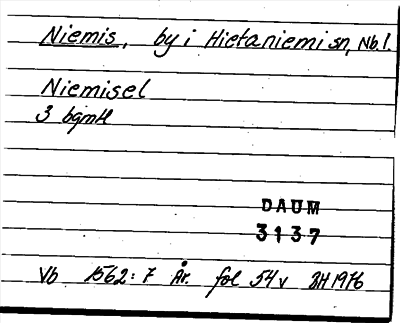 Niemis, by i Hietaniemi sn, Nb.l.
Niemisel
3 bgmtl
DAUM
3137
Vb 1562:7 År. fol 54v BH 1976